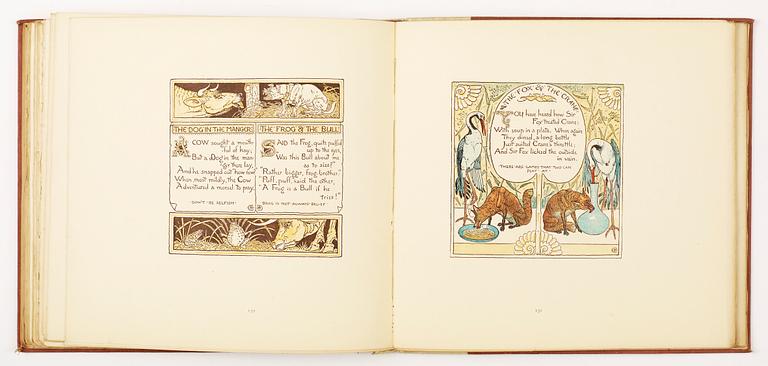 THE DOG IN THE MANGER
A COW sought a mouth-
ful of hay;
But a Dog in the man-
ger there lay,
And he snapped out "how now?"
When, most mildly, the Cow
Adventured a morsel to pray.
DON'T BE SELFISH
THE FROG & THE BULL
SAID the Frog, quite puffed
up to the eyes,
"Was this Bull about me
as to size?"
"Rather bigger, frog-brother."
"Puff, puff," said the other,
"A Frog is a Bull if he
tries!"
BRAG IS NOT ALWAYS BELIEF
THE FOX & THE CRANE
YOU have heard how Sir
Fox treated Crane:
With soup in a plate. When again
They dined, a long bottle
Just suited Crane's throttle;
And Sir Fox licked the outside
in vain.
THERE ARE GAMES THAT TWO CAN
PLAY AT